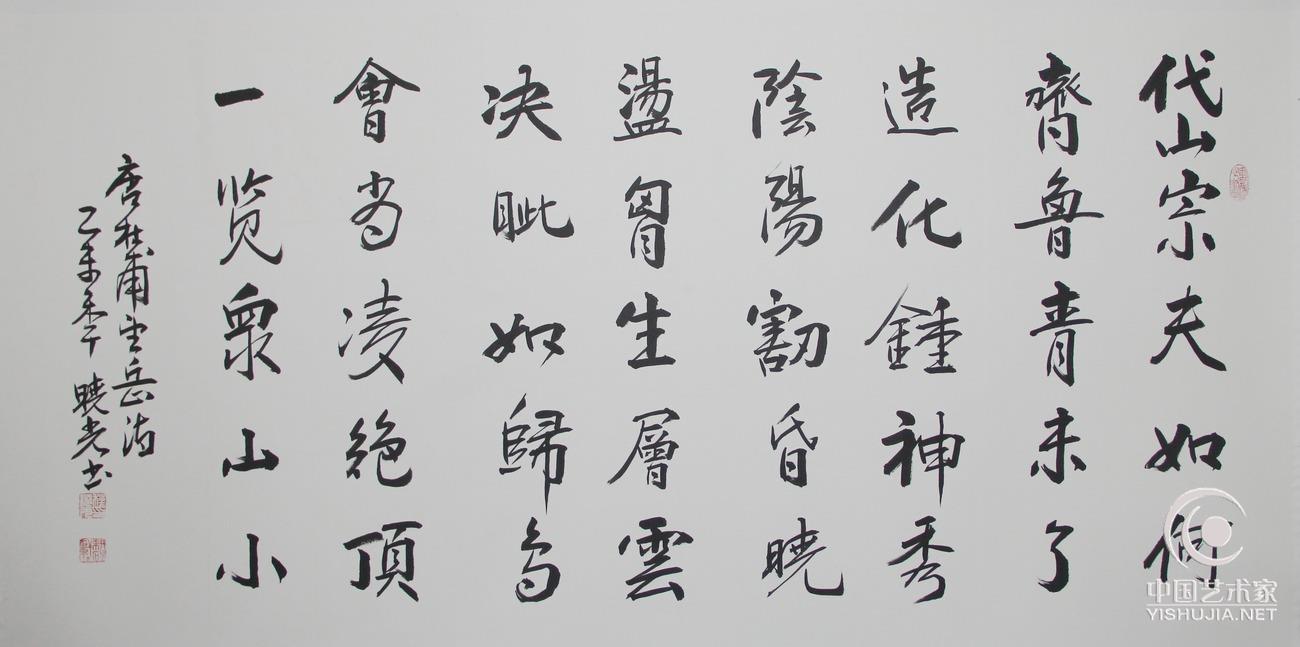 岱宗夫如何
齊魯青未了
造化鍾神秀
陰陽割昏曉
盪胷生層雲
决眦如歸鳥
會當凌絶頂
一览眾山小
唐杜甫望岳詩
乙未秊 曉光书
中国艺术家
YISHUJIA.NET